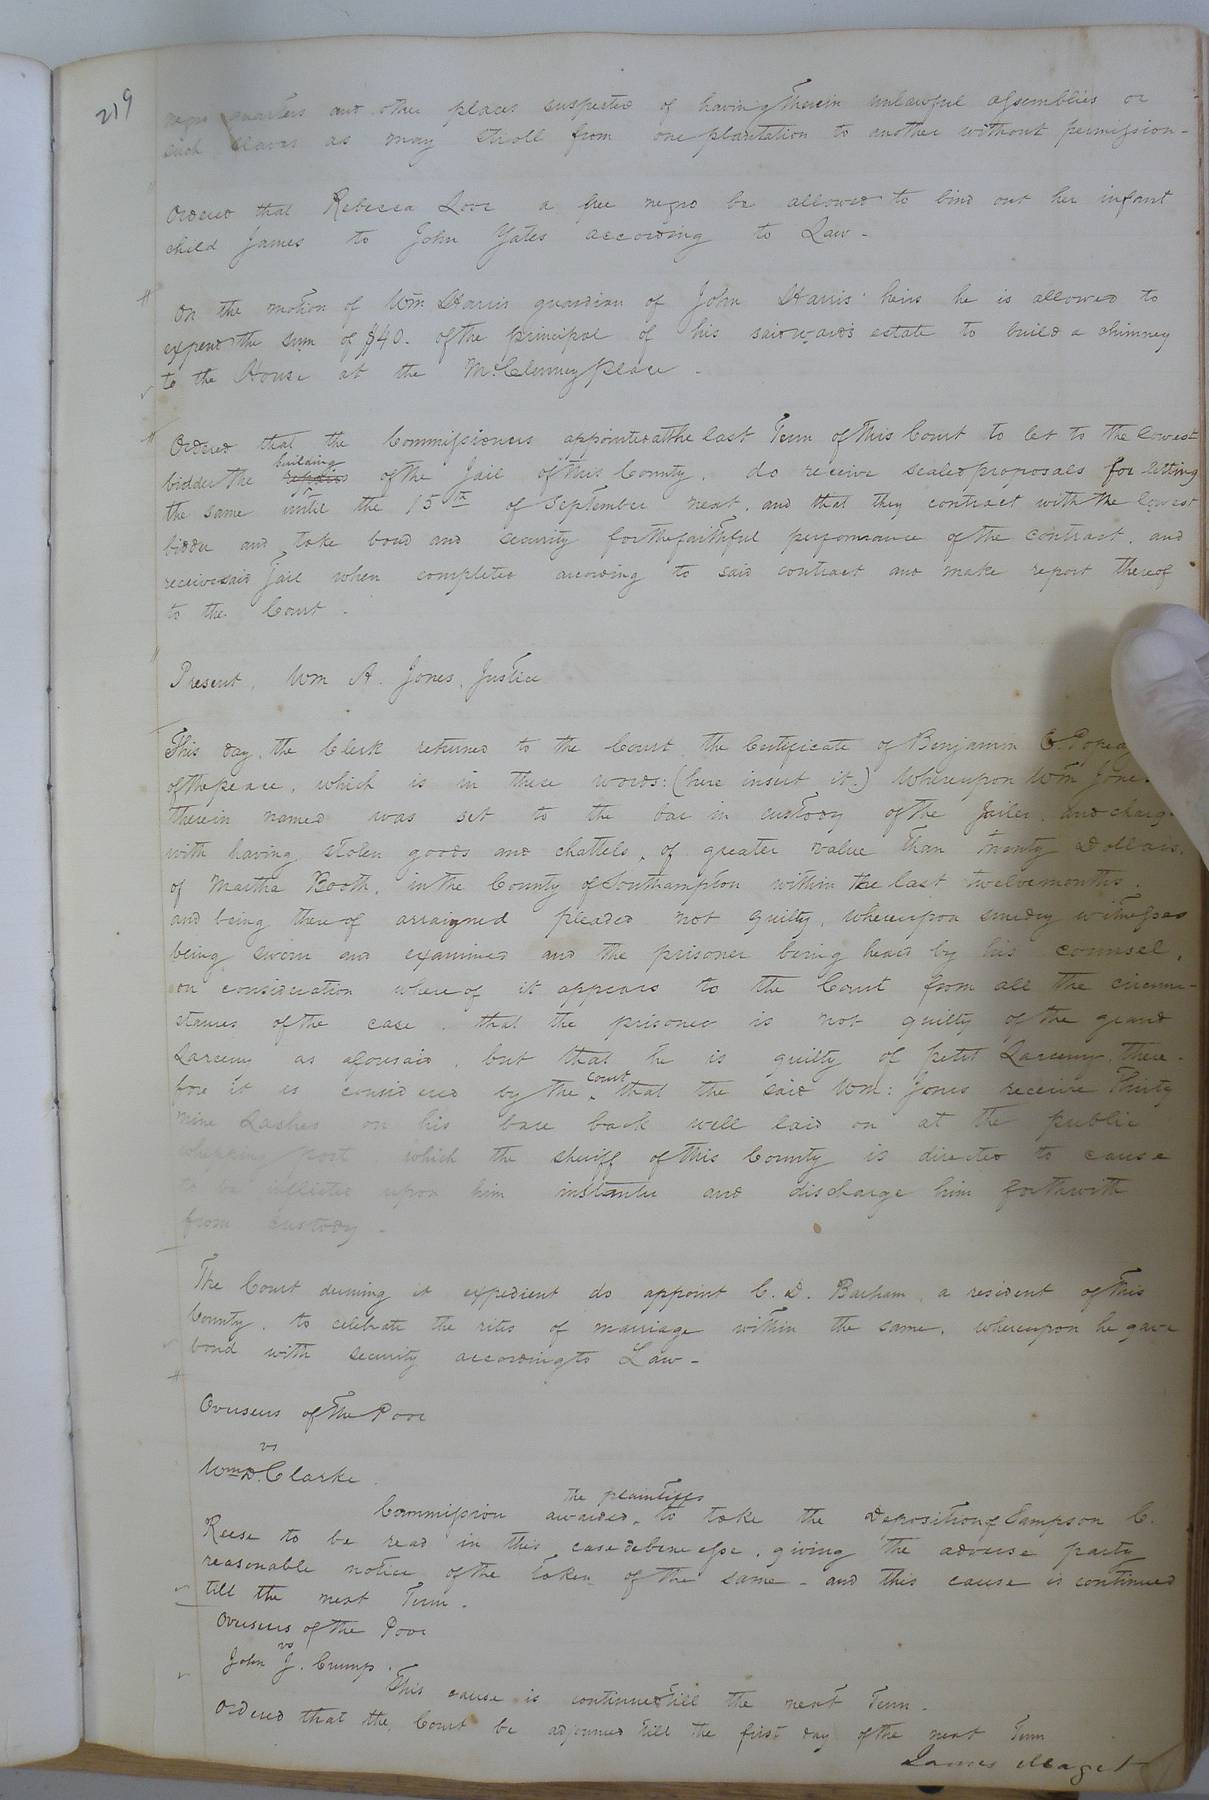 219
negro quarters and other places suspected of having therein unlawful assemblies or
such slaves as may stroll from one plantation to another without permission -
Ordered that Rebecca Love a free negro be allowed to bind out her infant
child James to John Yates according to Law -
On the motion of Wm Harris guardian of John Harris' heirs he is allowed to
expend the sum of $40. of the principal of his said wards estate to build a chimney
to the House at the McClenney place -
Ordered that the Commissioners appointed at the last Term of this Court to let to the lowest
building
bidder the repairs of the Jail of this County, do receive sealed proposals for letting
the same until the 15th of September next, and that they contract with the lowest
bidder and take bond and security for the faithful performance of the contract, and
receive said Jail when completed according to said contract and make report thereof
to the Court -
Present, Wm A. Jones, Justice
This day, the Clerk returned to the Court the Certificate of Benjamin C. Pope a
of the peace, which is in these words: (here insert it.) Whereupon Wm Jones
therein named was set to the bar in custody of the Jailer, and charg
with having stolen goods and chattels, of greater value than twenty Dollars,
of Martha Booth, in the County of Southampton within the last twelve months,
and being thereof arraigned pleaded not guilty, whereupon sundry witnesses
being sworn and examined and the prisoner being heard by his counsel,
on consideration whereof it appears to the Court from all the circum-
stances of the case, that the prisoner is not guilty of the grand
Larceny as aforesaid, but that he is guilty of petit Larceny, there-
court
fore it is considered by the ‸ that the said Wm: Jones receive Thirty
nine Lashes on his bare back well laid on at the public
whipping post which the sheriff of this County is directed to cause
to be inflicted upon him instanter and discharge him forthwith
from custody -
The Court deeming it expedient do appoint C. D. Barham, a resident of this
County, to celebrate the rites of marriage within the same, whereupon he gave
bond with security according to Law -
Overseers of the Poor
vs
Wm D. Clarke
the plaintiffs
Commission awarded ‸ to take the Deposition of Sampson C.
Reese to be read in this case debene esse, giving the adverse party
reasonable notice of the taken of the same - and this cause is continued
till the next Term -
Overseers of the Poor
vs
John J. Crump.
This cause is continued till the next Term -
Ordered that the Court be adjourned till the first day of the next Term
James Maget